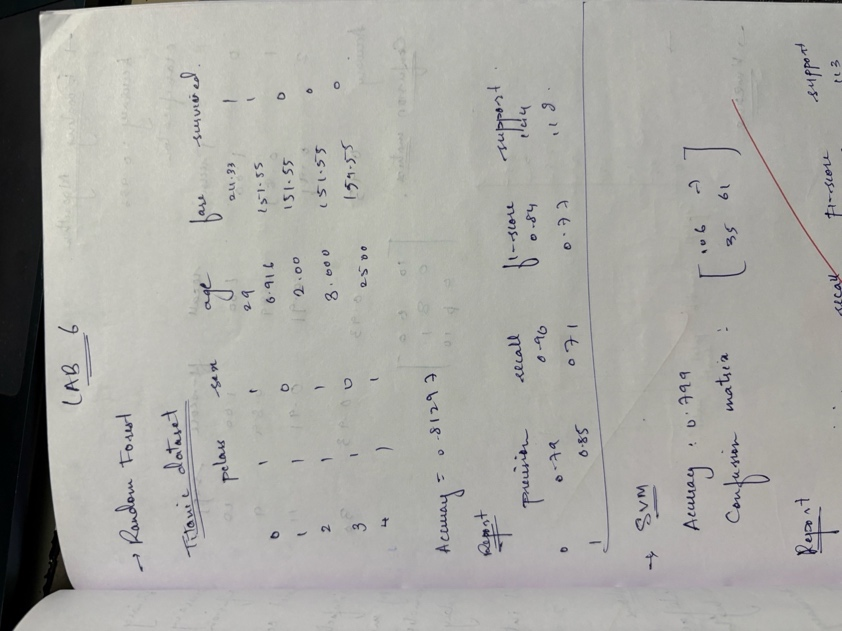 LAB 6
→ Random Forest
Titanic dataset
pclass sex age fare survived.
0 1 1 29 211.33 1
1 1 0 0.916 151.55 1
2 1 1 2.00 151.55 0
3 1 0 3.000 151.55 0
4 1 1 2500 151.55 0
Accuracy = 0.81297
Report
precision recall f1-score support
0 0.79 0.90 0.84 144
1 0.85 0.71 0.77 118.
→ SVM
Accuracy : 0.799
Confusion matrix : [ 106 7
35 61 ]
Report
recall f1-score support
113